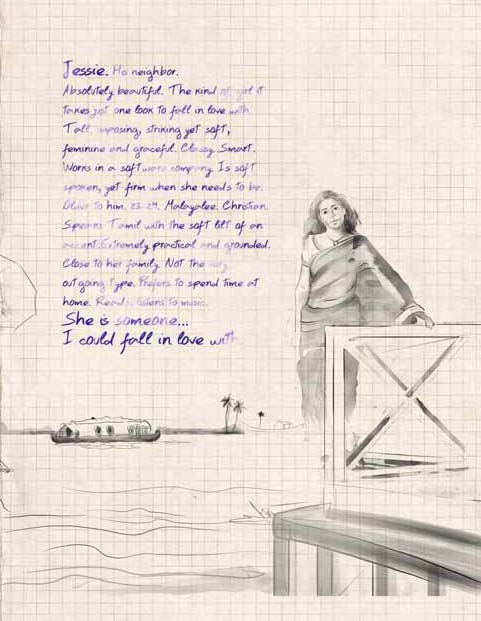 Jessie. His neighbor.
Absolutely beautiful. The kind of girl it
takes just one look to fall in love with.
Tall, imposing, striking yet soft,
feminine and graceful. Classy. Smart.
Works in a software company. Is soft
spoken, yet firm when she needs to be.
Older to him. 23-24. Malayalee. Christian.
Speaks Tamil with the soft lilt of an
accent. Extremely practical and grounded.
Close to her family. Not the very
outgoing type. Prefers to spend time at
home. Reads, listens to music.
She is someone...
I could fall in love with.